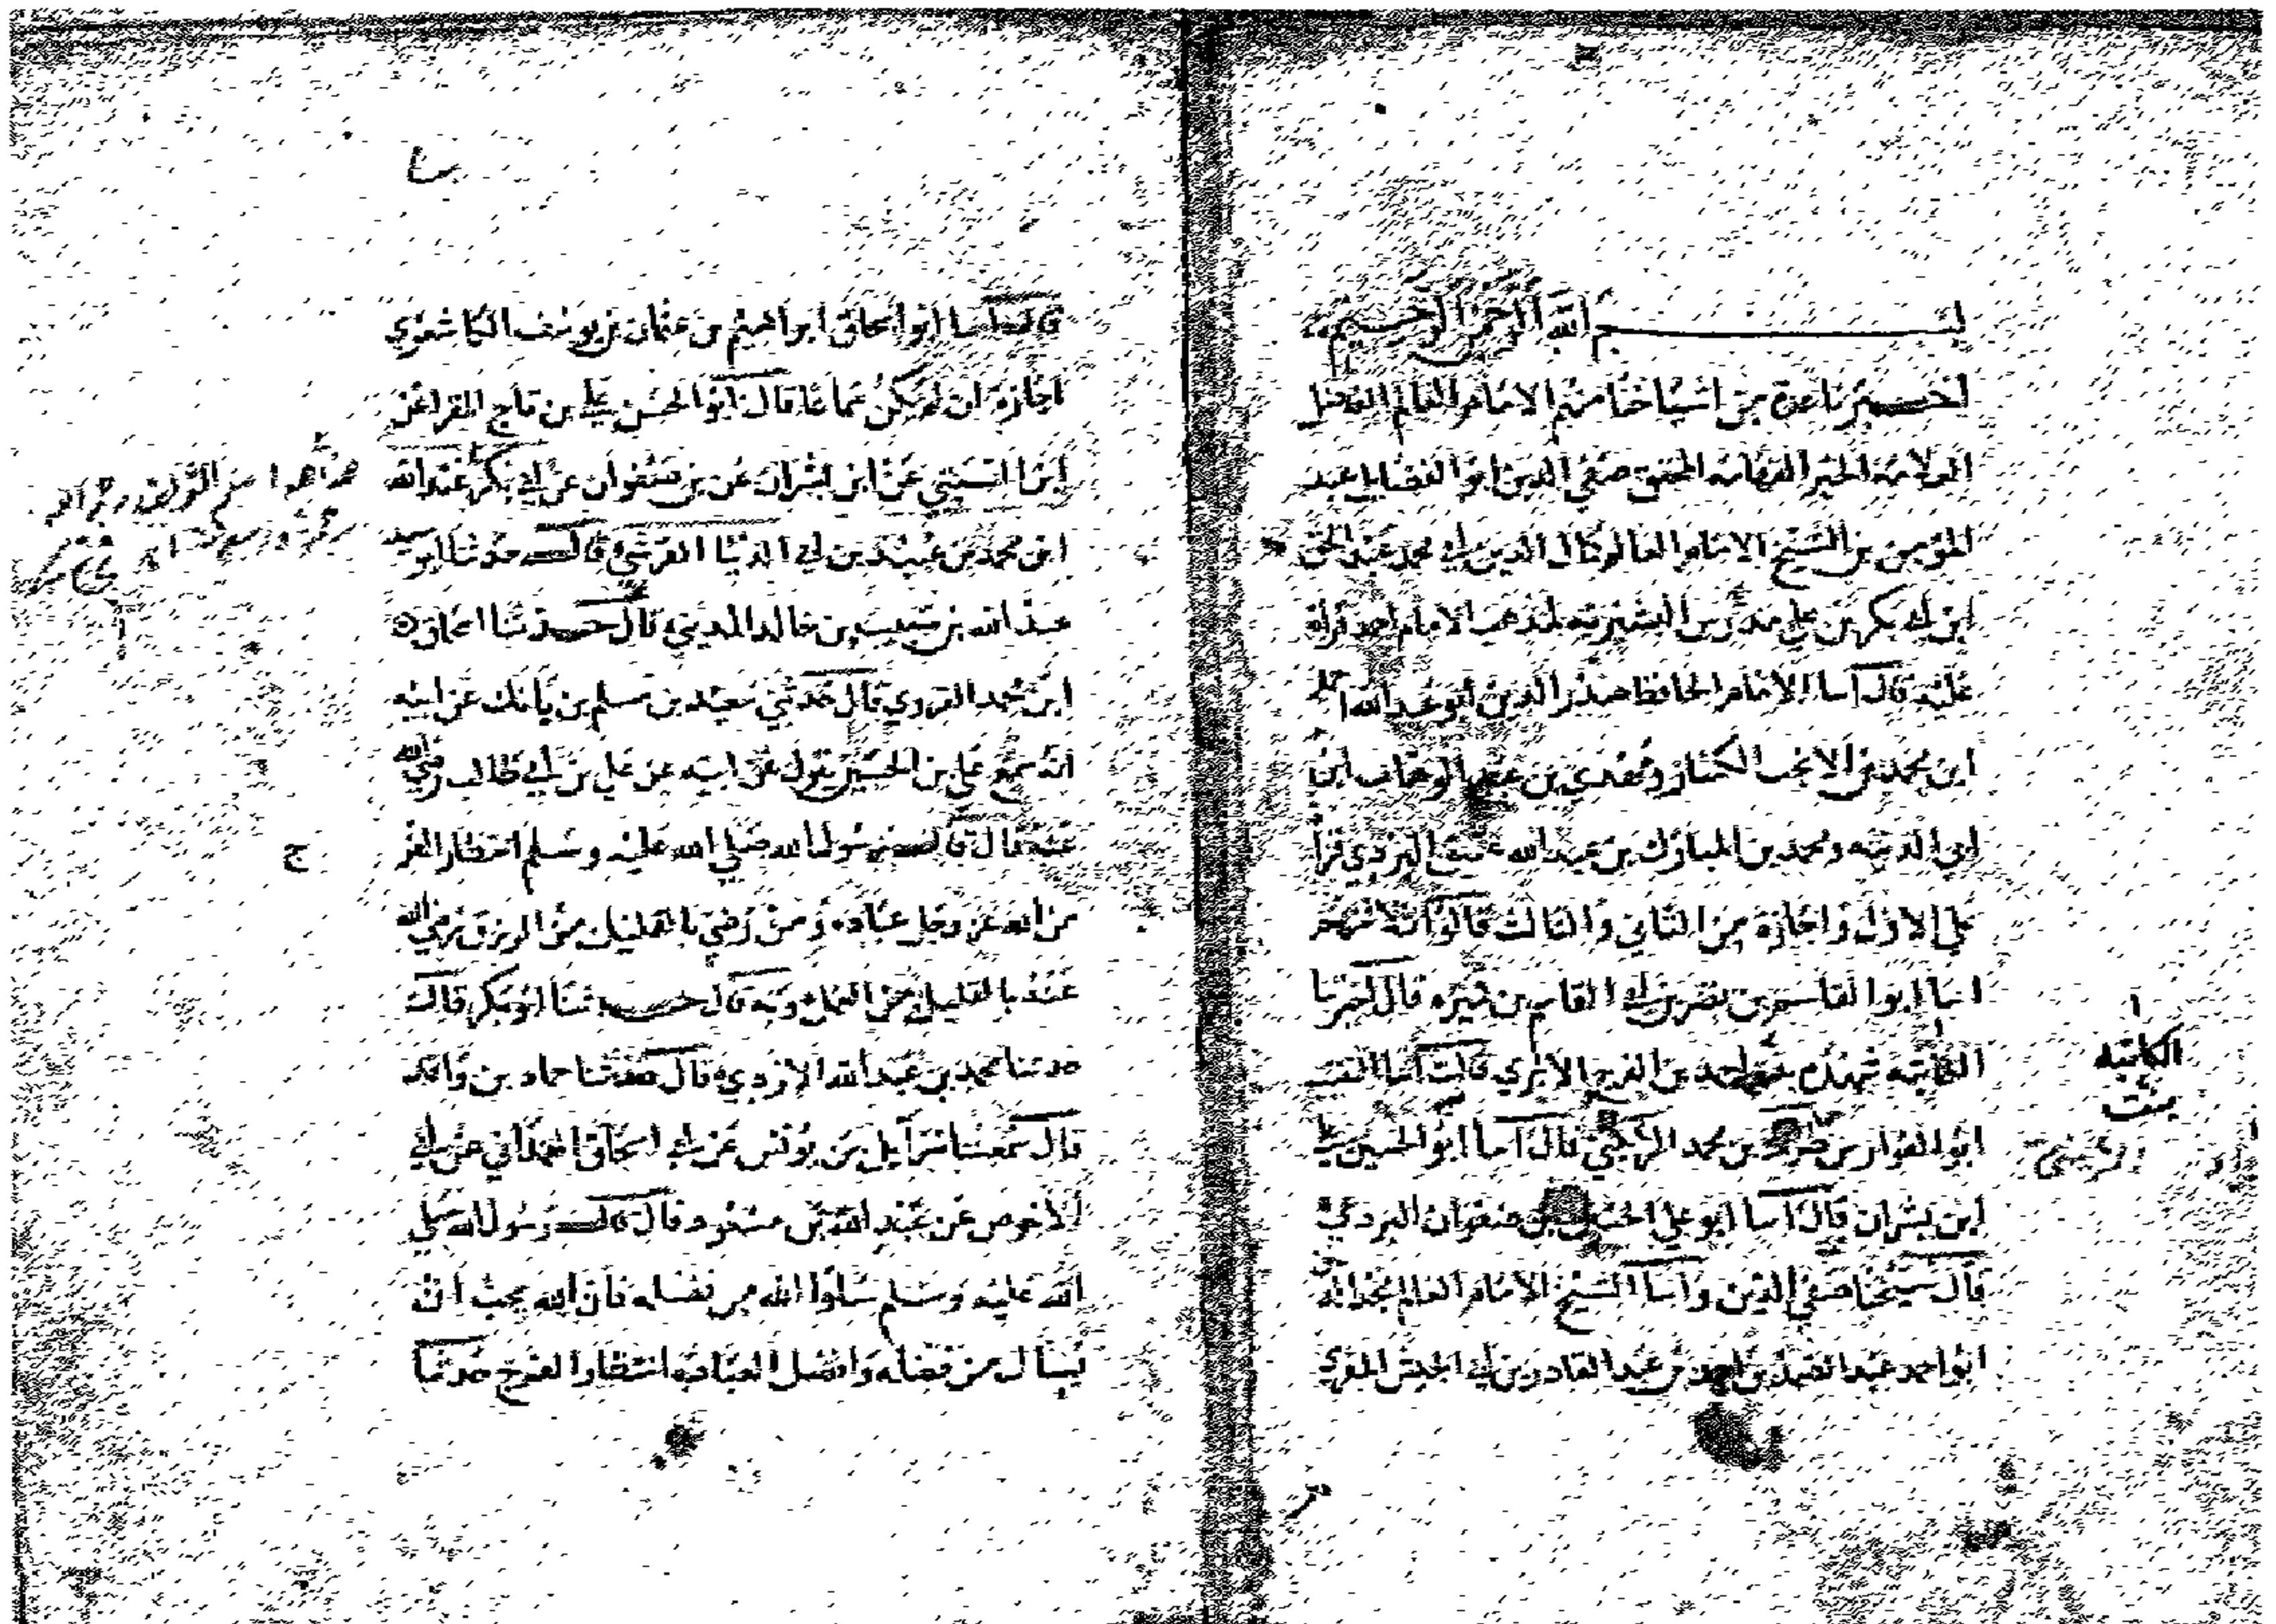 بسم الله الرحمن الرحيم
اخبرنا عدة من اشياخنا منهم الامام العالم الفاضل
العلامة الحبر الفهامة المحقق صفي الدين ابو الفضايل عبد
المؤمن بن الشيخ الامام العالم كمال الدين ابي محمد عبد الحق
ابن ابي بكر بن علي مدرس البشيرية لمذهب الامام احمد قراة
عليه قال انبا الامام الحافظ صدر الدين ابو عبد الله
ابن محمد بن الانجب الكسار بن
ابن الدينه ومحمد بن المبارك بن عبد الله البزدي قراة
علي الاول واجازة من الثاني والثالث قالوا
انبا ابو القاسم بن نصر بن ابي القاسم بن قال اخبرتنا
الكاتبة شهدة بنت احمد بن الفرج الابري قالت انبا النقيب
الكاتبة
بنت
ابو الفوارس طراد بن محمد الزينبي قال انبا ابو الحسين علي
الزينبي
ابن بشران قال انبا ابو علي الحسين بن صفوان البردعي
قال شيخنا صفي الدين وانبا الشيخ الامام العالم مجد الدين
ابو احمد عبد الصمد بن احمد بن عبد القادر بن ابي الجيش المقري
قال انبا ابو اسحاق ابراهيم بن عثمان بن يوسف الكاشغري
اجازة ان لم يكن سماعا قال ابو الحسن علي بن تاج القرا عن
ابن بشران عن بن صفوان عن ابي بكر عبد الله
ابن محمد بن عبيد بن ابي الدنيا القرشي قال حدثنا ابو سعيد
عبد الله بن شبيب بن خالد المديني قال حدثنا اسحاق
ابن محمد الفروي قال حدثني سعيد بن مسلم بن بانك عن ابيه
انه سمع علي بن الحسين يقول عن ابيه عن علي بن ابي طالب رضي الله
عنه قال قال رسول الله صلي الله عليه وسلم انتظار الفر
ج
من الله عز وجل عبادة ومن رضي بالقليل من الرزق رضي الله
عنه بالقليل من العمل وبه قال حدثنا ابو بكر قال
حدثنا محمد بن عبد الله الازدي قال حدثنا حماد بن واقد
قال سمعت اسرآيل بن يونس عن ابي اسحاق الهمداني عن ابي
الاحوص عن عبد الله بن مسعود قال قال رسول الله صلي
الله عليه وسلم سلوا الله من فضله فان الله يحب ان
يسال من فضله وافضل العبادة انتظار الفرج حدثنا